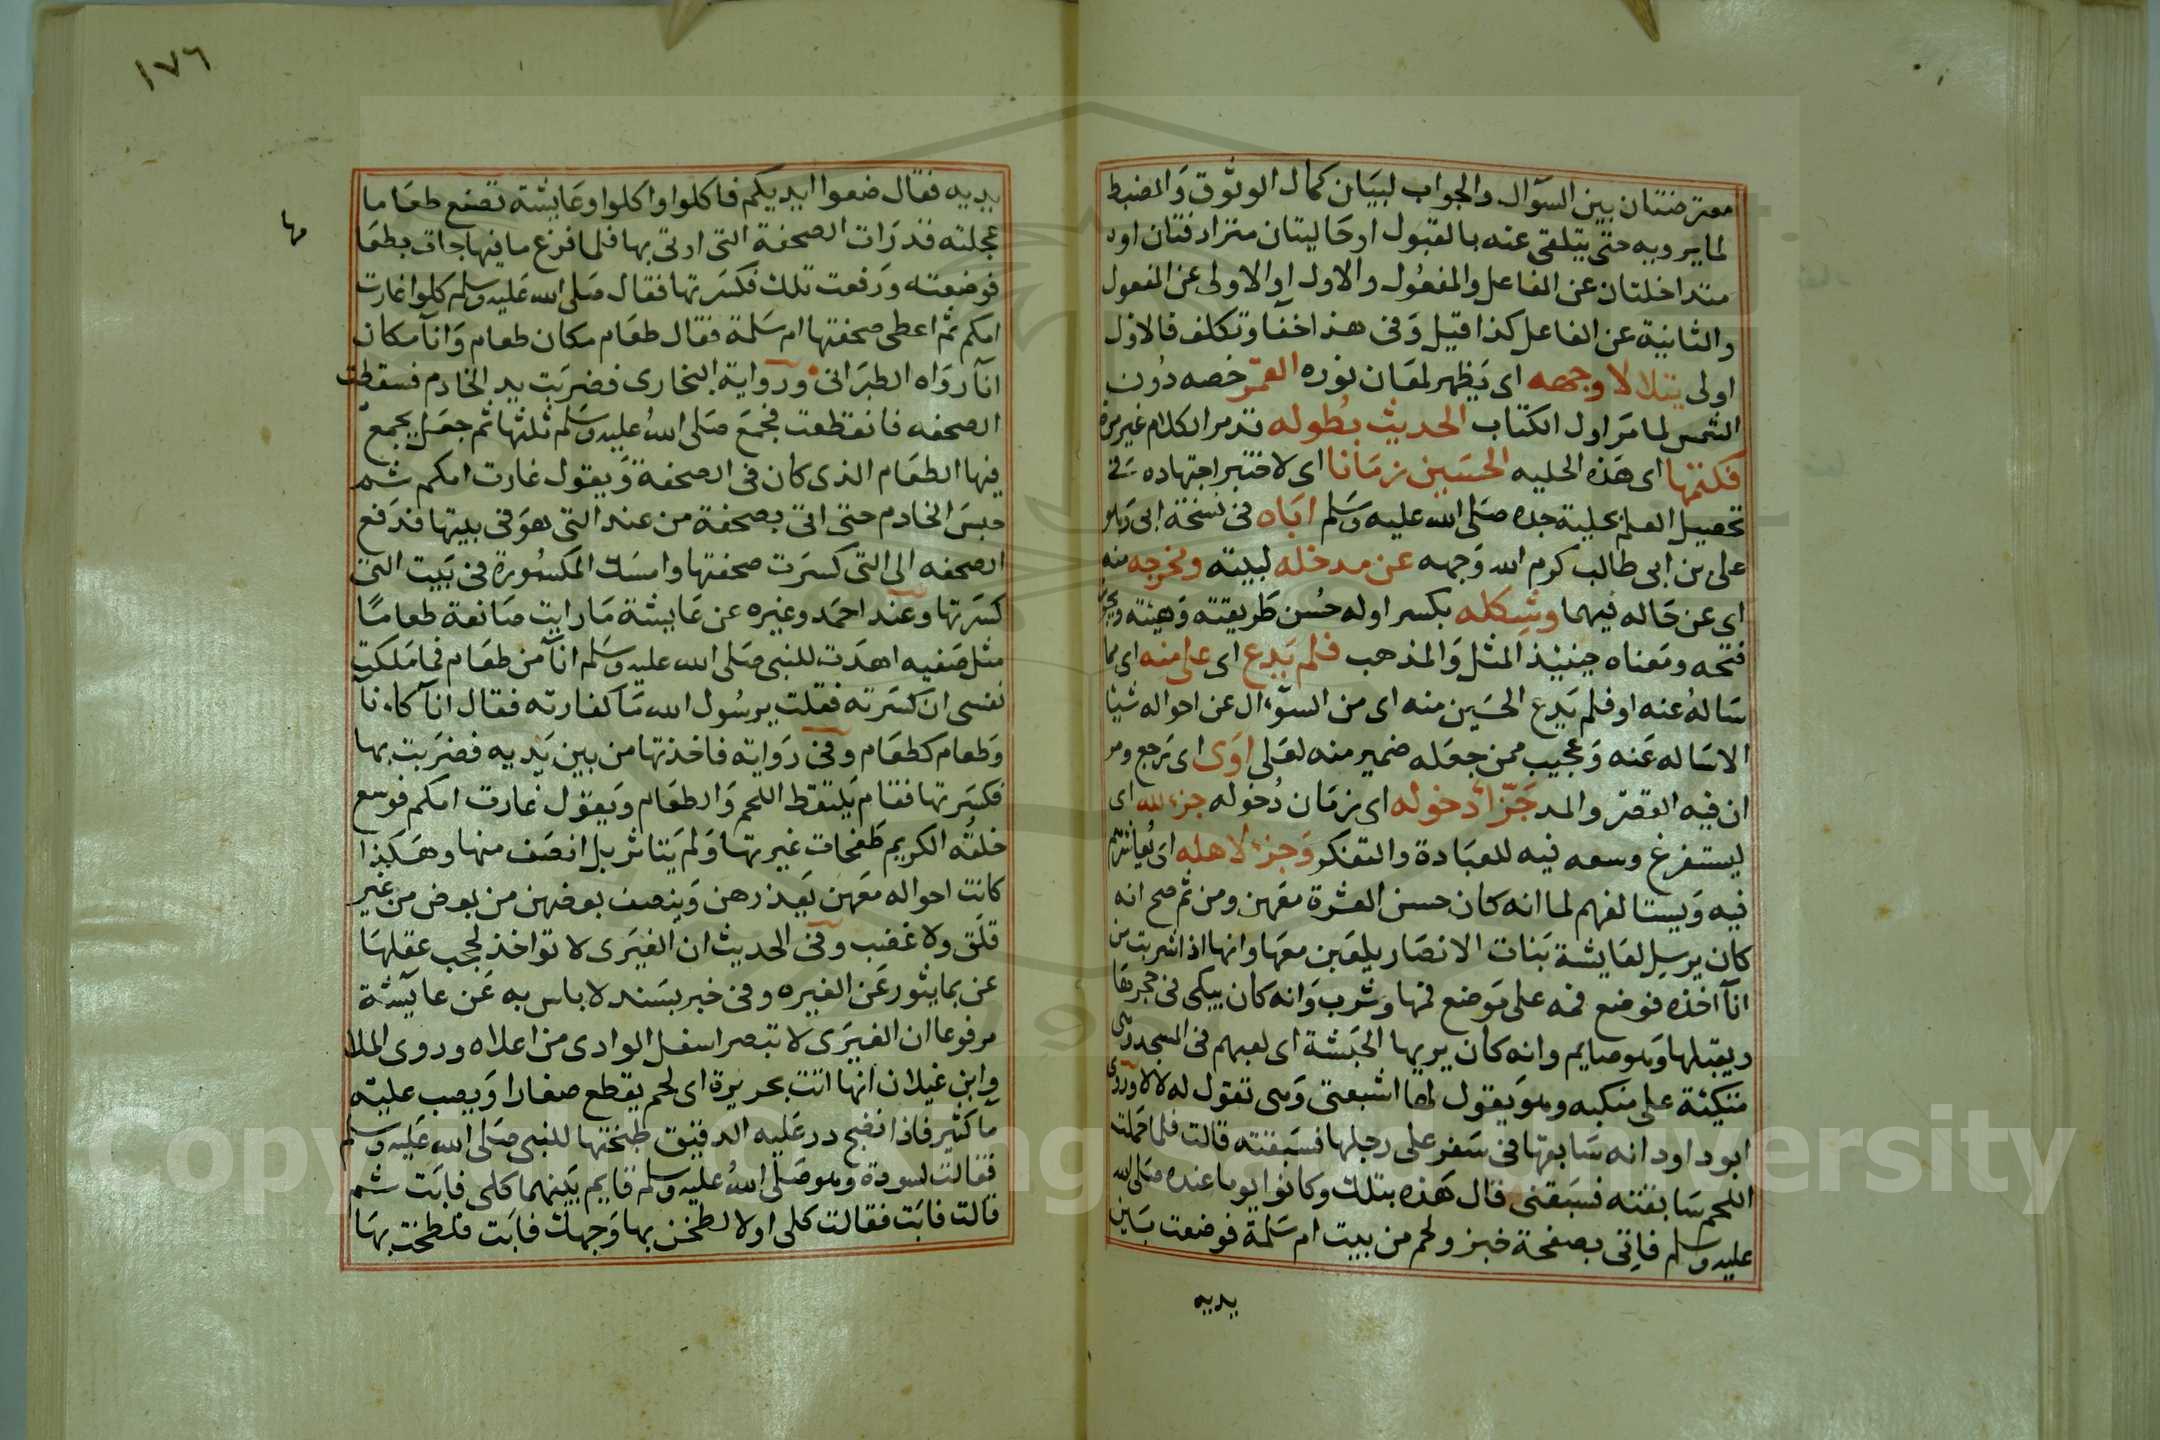 معترضتان بين السؤال والجواب لبيان كمال الوثوق والضبط
لما يرويه حتى يتلقى عنه بالقبول او حاليتان مترادفتان او
متداخلتان عن الفاعل والمفعول والاول او الاولى عن المفعول
والثانية عن الفاعل كذا قيل وفى هذا خفا وتكلف فالاول
اولى يتلالا وجهه اى يظهر لمعان نوره القمر خصه دون
الشمس لما مر اول الكتاب الحديث بطوله قد مر الكلام غير مرة
فكتمتها اى هذه الحليه الحسين زمانا اى لاختبر اجتهاده فى
تحصيل العلم بحلية جده صلى الله عليه وسلم اباه فى نسخة ابى
على بن ابى طالب كرم الله وجهه عن مدخله لبيته ومخرجه منه
اى عن حاله فيهما وشكله بكسر اوله حسن طريقته وهيئته
فتحه ومعناه حينئذ المثل والمذهب فلم يدع اى على منه اى مما
ساله عنه او فلم يدع الحسين منه اى من السؤال عن احواله شيئا
الا ساله عنه وعجيب ممن جعله ضمير منه لعلى اوى اى رجع ومر
ان فيه القصر والمد جزا دخوله اى زمان دخوله جزء لله اى
ليستفرغ وسعه فيه للعبادة والتفكر وجزء لاهله اى
فيه ويستالفهم لما انه كان حسن العشرة معهن ومن ثم صح انه
كان يرسل لعايشة بنات الانصار يلعبن معها وانها اذا شربت من
انآ اخذه فوضع فمه على موضع فمها وشرب وانه كان يبكى فى حجرها
ويقبلها وهو صايم وانه كان يريها الحبشة اى لعبهم فى المسجد وهى
متكئة على منكبه وهو يقول لها اشبعتى وهى تقول له لا لا وروى
ابوداود انه سابقها فى سفر على رجلها فسبقته قالت فلما حملت
اللحم سابقته فسبقنى قال هذه بتلك وكانوا يوما عنده صلى الله
عليه وسلم فاتى بصفحة خبز ولحم من بيت ام سلمة فوضعت بين
يديه
١٧٦
يديه فقال ضعوا ايديكم فاكلوا واكلوا وعايشة تصنع طعاما
عجلته قد رات الصحفة التى اوتى بها فلما فرغ ما فيها جات بطعا
مها
فوضعته ورفعت تلك فكسرتها فقال صلى الله عليه وسلم كلوا غارت
امكم ثم اعطى صحفتها ام سلمة فقال طعام مكان طعام وانآ مكان
انآ رواه الطبرانى ورواية البخارى فضربت يد الخادم فسقطت
الصحفه فانقطعت فجمع صلى الله عليه وسلم ثلثها ثم جعل يجمع
فيها الطعام الذى كان فى الصحفة ويقول غارت امكم ثم
حبس الخادم حتى اتى بصحفة من عند التى هو فى بيتها فدفع
الصحفه الى التى كسرت صحفتها وامسك المكسورة فى بيت التى
كسرتها وعند احمد وغيره عن عايشة ما رايت صانعة طعاما
مثل صفيه اهدت للنبى صلى الله عليه وسلم انآ من طعام فما ملكت
نفسى ان كسرته فقلت يرسول الله ما كفارته فقال انآ كانآ
وطعام كطعام وفى روايه فاخذتها من بين يديه فضربت بها
فكسرتها فقام يلتقط اللحم والطعام ويقول غارت امكم فوسع
خلقه الكريم طفحات غيرتها ولم يتاثر بل انصف منها وهكذا
كانت احواله معهن يعذرهن وينصف بعضهن من بعض من غير
قلق ولا غضب وفى الحديث ان الغيرى لا تواخذ لحجب عقلها
عن بما يثور عن الغيره وفى خبر بسند لا باس به عن عايشة
مرفوعا ان الغيرى لا تبصر اسفل الوادى من اعلاه وروى الملا
وابن غيلان انها اتت بحريرة اى لحم يقطع صغارا ويصب عليه
مآ كثير فاذا نضج در عليه الدقيق طبختها للنبى صلى الله عليه وسلم
فقالت لسودة وهو صلى الله عليه وسلم قايم بينهما كلى فابت ثم
قالت فابت فقالت كلى اولا لطخن بها وجهك فابت فلطخت بها
Copyright © King Saud University